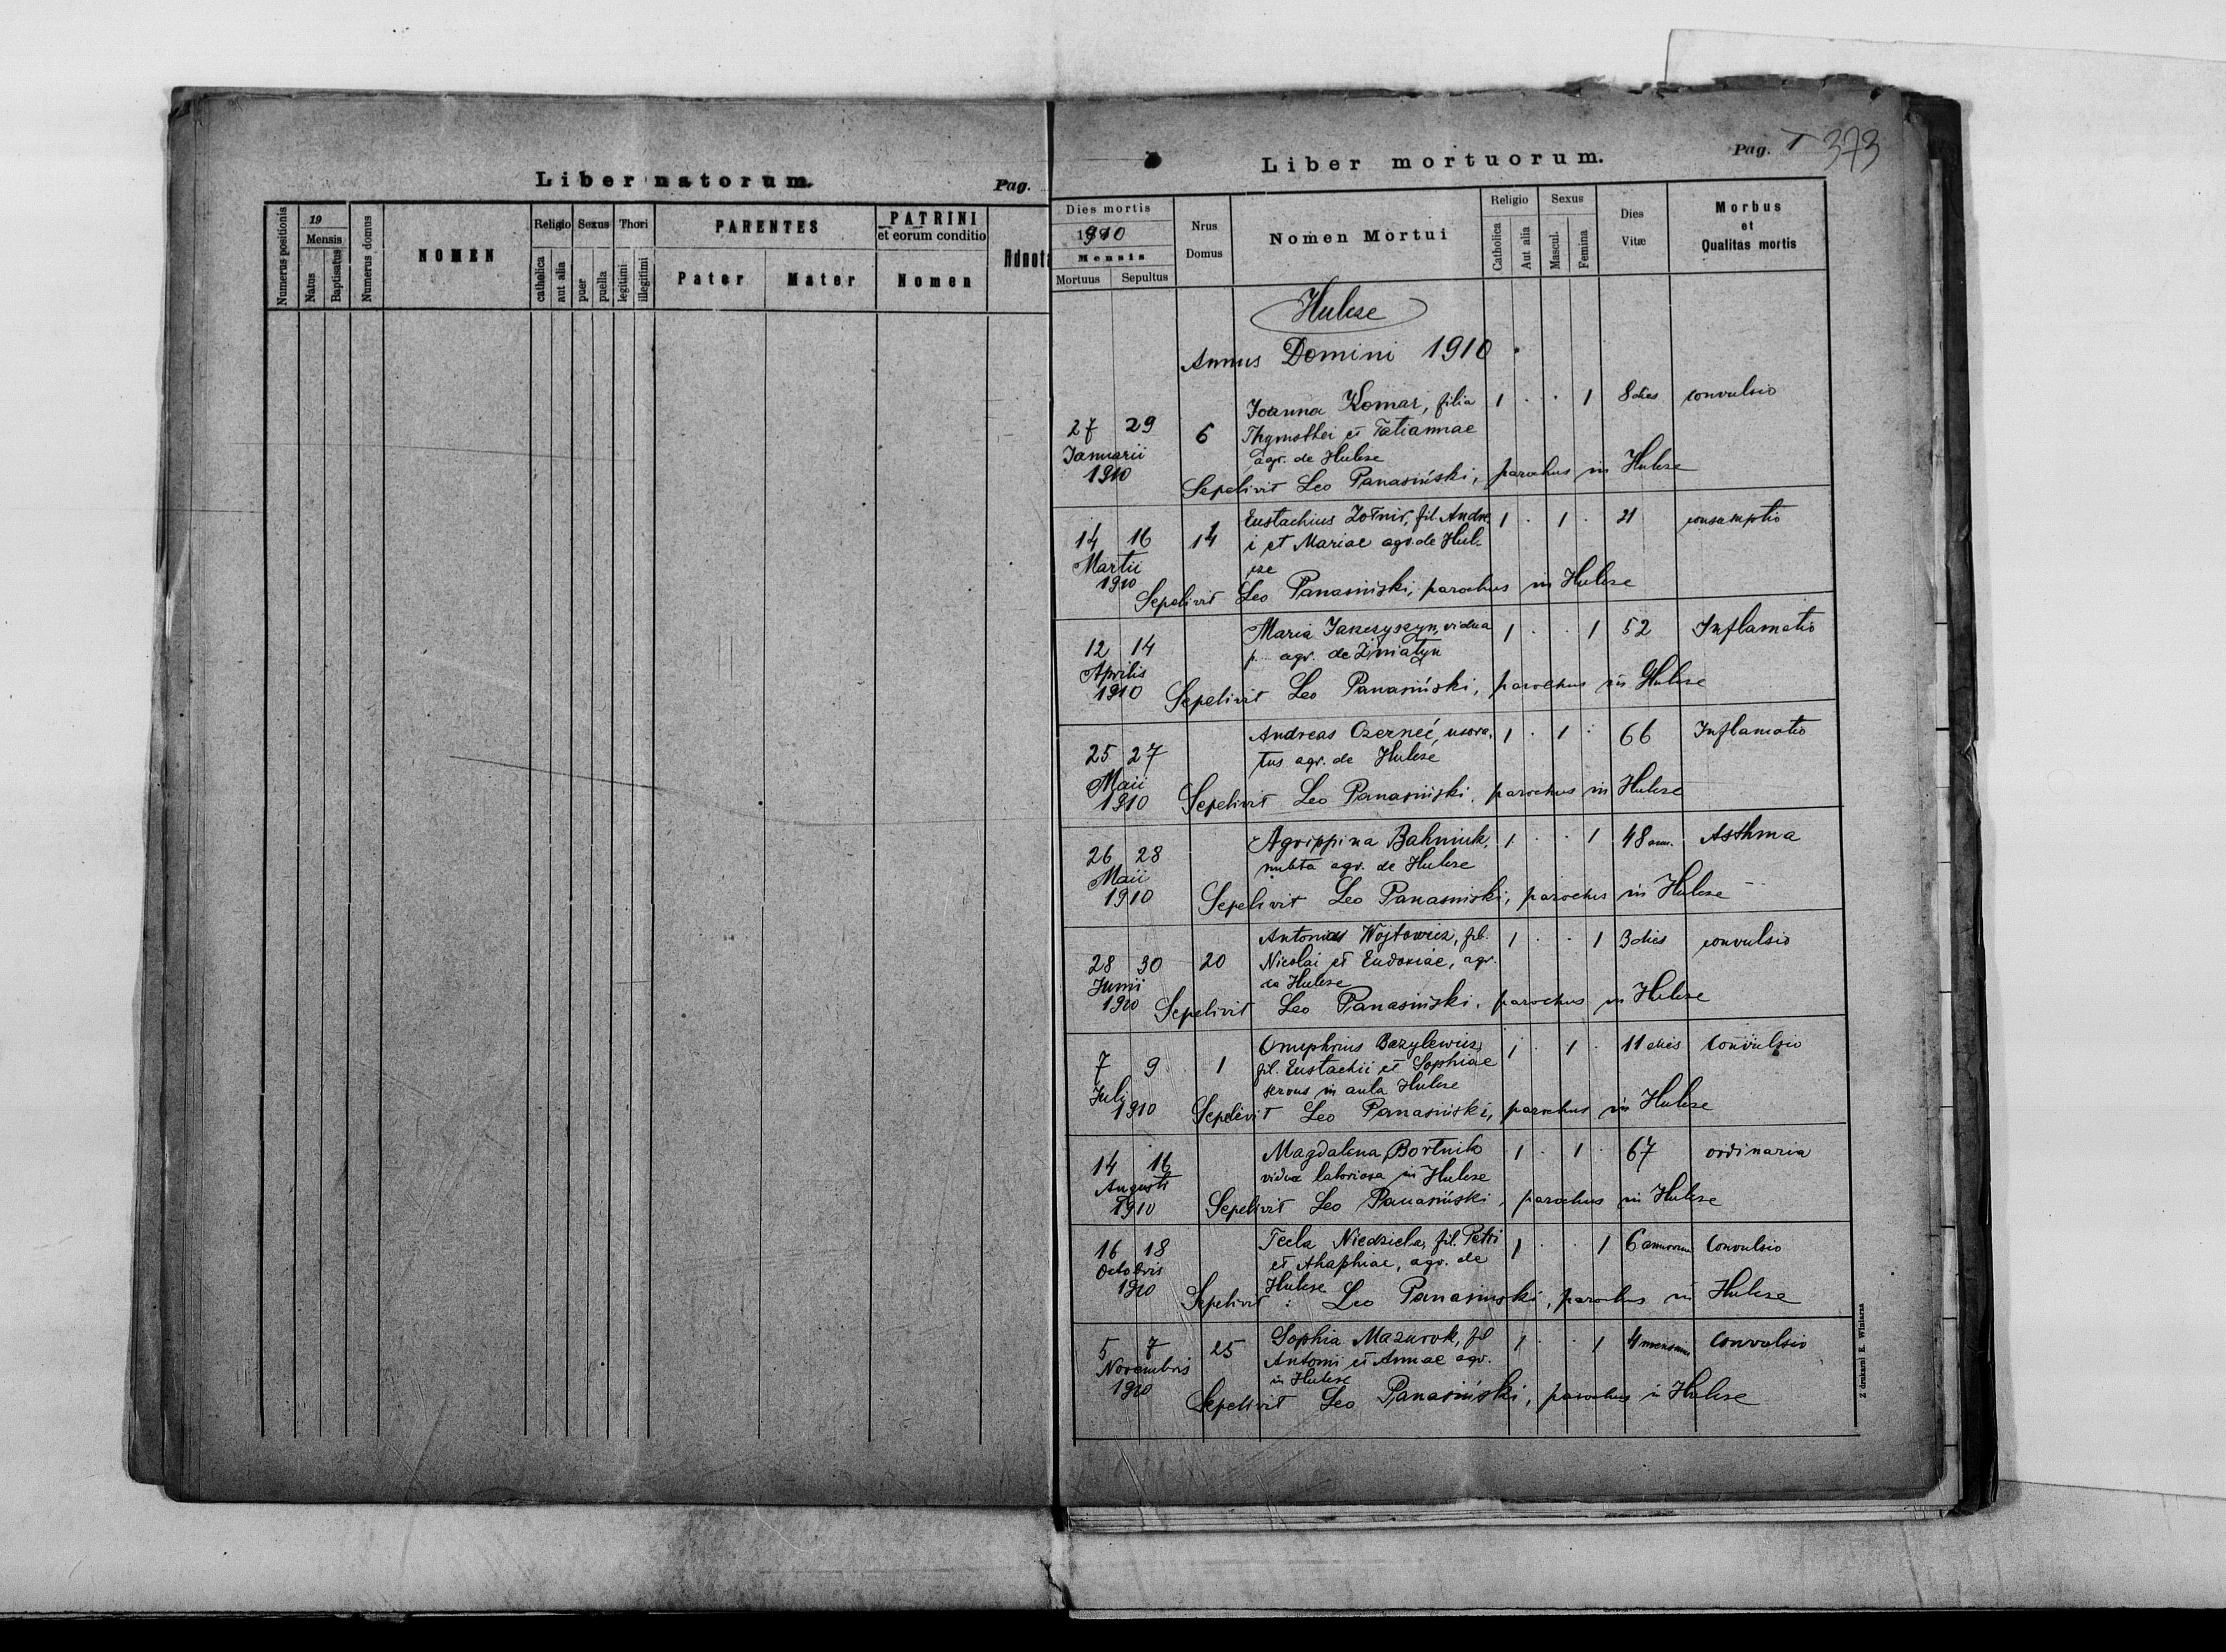 Liber natorum.
Pag.
Numerus positionis
19
Mensis
Natus
Baptisatus
Numerus domus
NOMEN
Religio
catholica
aut alia
Sexus
puer
puella
Thori
legitimi
illegitimi
PARENTES
Pater
Mater
PATRINI
et eorum conditio
Nomen
Adnota
Liber mortuorum.
Pag. 373
Dies mortis
1910
Mensis
Mortuus
Sepultus
Nrus
Domus
Nomen Mortui
Religio
Catholica
Aut alia
Sexus
Mascul.
Femina
Dies
Vitæ
Morbus
et
Qualitas mortis
Hulcze
Annus Domini 1910
27 29 6 Joanna Komar, filia 1 . . 1 8 dies convulsio
Januarii Thymothei et Tatiannae
1910 agr. de Hulcze
Sepelivit Leo Panasiński, parochus in Hulcze
14 16 14 Eustachius Żołnir, fil. Andre 1 . 1 . 21 consumptio
Martii i et Mariae agr. de Hul
1910 cze
Sepelivit Leo Panasiński, parochus in Hulcze
12 14 Maria Janczyszyn, vidua 1 . . 1 52 Inflamatio
Aprilis p. agr. de Żniatyn
1910 Sepelivit Leo Panasiński, parochus in Hulcze
25 27 Andreas Czerneć, uxora 1 . 1 . 66 Inflamatio
Maii tus agr. de Hulcze
1910 Sepelivit Leo Panasiński, parochus in Hulcze
26 28 Agrippina Bahniuk, 1 . . 1 48 ann. Asthma
Maii nubta agr. de Hulcze
1910 Sepelivit Leo Panasiński, parochus in Hulcze
28 30 20 Wojtowicz, fil. 1 . . 1 3 dies convulsio
Junii Nicolai et Eudoxiae, agr.
1910 de Hulcze
Sepelivit Leo Panasiński, parochus in Hulcze
7 9 1 Onuphrius Bazylewicz, 1 . 1 . 11 dies Convulsio
Juli fil. Eustachii et Sophiae
1910 servus in aula Hulcze
Sepelivit Leo Panasiński, parochus in Hulcze
14 16 Magdalena Bortnik 1 . 1 . 67 ordinaria
Augusti vidua laboriosa in Hulcze
1910 Sepelivit Leo Panasiński, parochus in Hulcze
16 18 Tecla Niedziela, fil. Petri 1 . . 1 6 annorum Convulsio
Octobris et Ahaphiae, agr. de
1910 Hulcze
Sepelivit: Leo Panasinski, parochus in Hulcze
5 7 25 Sophia Mazurok, fil 1 . . 1 4 mensium Convulsio
Novembris Antoni et Annae agr.
1910 in Hulcze
Sepelivit Leo Panasiński, parochus in Hulcze
Z drukarni E. Winiarza